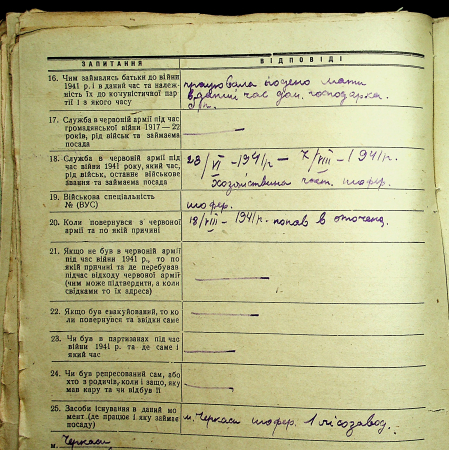 ЗАПИТАННЯ
ВІДПОВІДІ
16. Чим займались батьки до війни
1941 р. і в даний час та належ-
ність їх до комуністичної пар-
тії і з якого часу
працювала мати
в даний час дом. господарка.
б/п.
17. Служба в червоній армії під час
громадянської війни 1917—22
років, рід військ та займаєма
посада
—
18. Служба в червоній армії під
час війни 1941 року, який час,
рід військ, останнє військове
звання та займаєма посада
23/VI - 1941 р — 7/VIII - 1941 р.
Хозяйствина част. шофер.
19. Військова спеціальність
№ (ВУС)
шофер.
20. Коли повернувся з червоної
армії та по якій причині
18/VIII - 1941 р. попав в оточена.
21. Якщо не був в червоній армії
під час війни 1941 р., то по
якій причині та де перебував
підчас відходу червоної армії
(чим може підтвердити, а коли
свідками то їх адреса)
—
22. Якщо був евакуйований, то ко-
ли повернувся та звідки саме
—
23. Чи був в партизанах під час
війни 1941 р. та де саме і
який час
—
24. Чи був репресований сам, або
хто з родичів, коли і защо, яку
мав кару та чи відбув її
—
25. Засоби існування в даний мо-
мент (де працює і яку займає
посаду)
м. Черкаси шофер. 1 лісозавод.
м. Черкаси